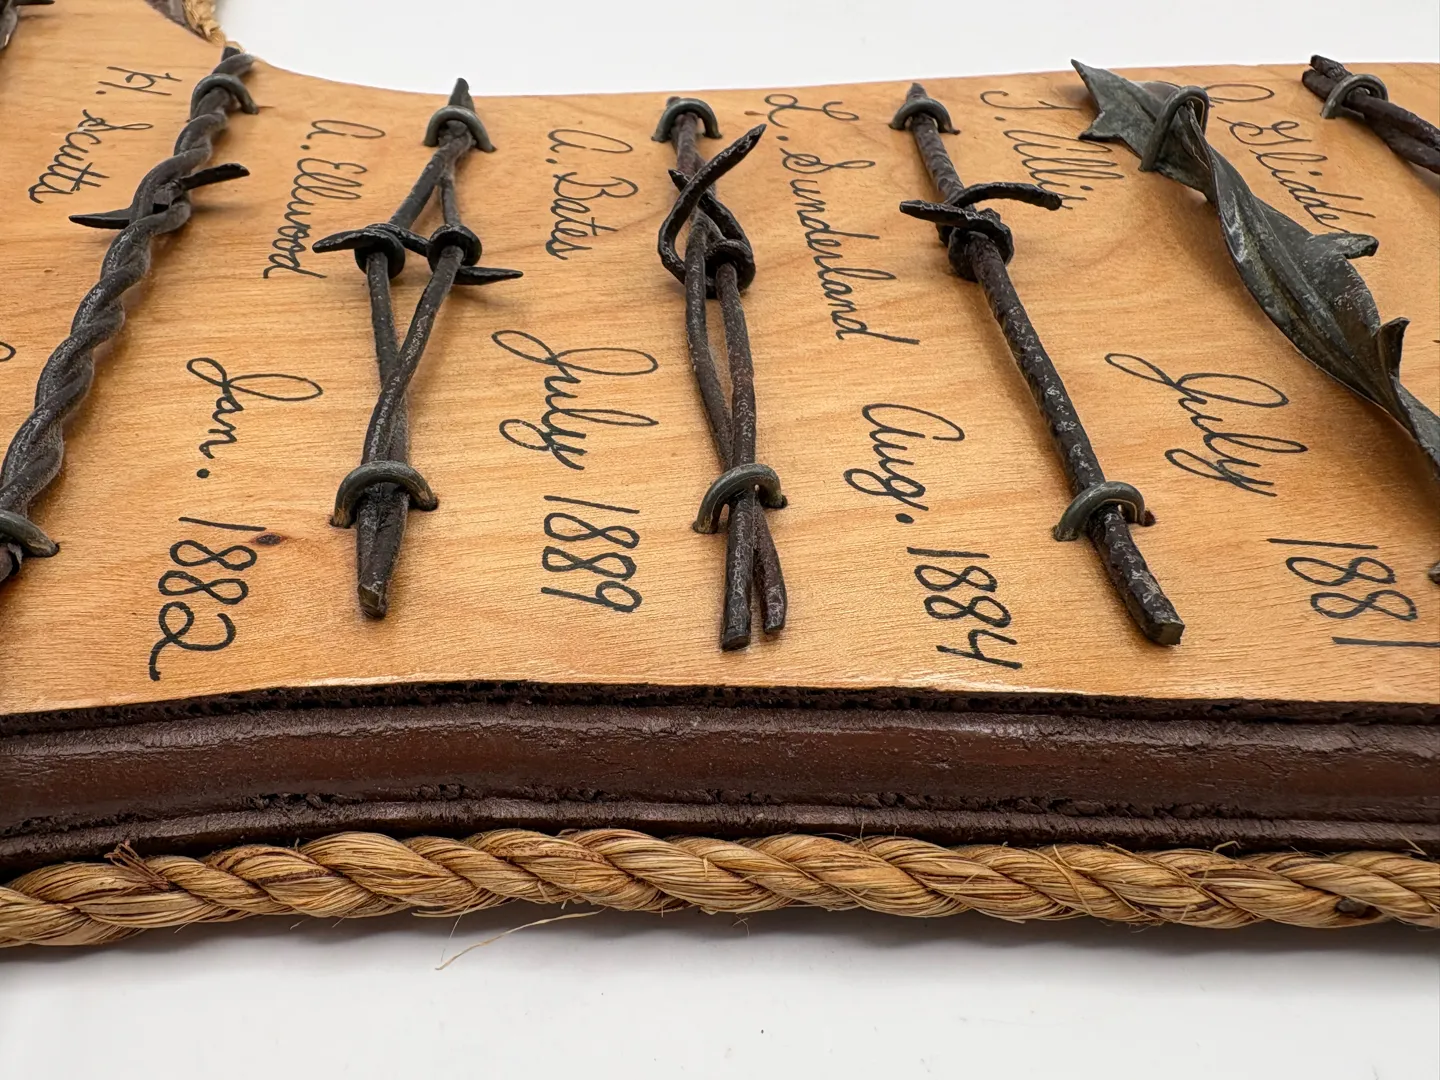 H. Scutt
A. Ellwood
Jan. 1882
A. Bates
July 1889
L. Sunderland
Aug. 1884
T. Allis
July 1881